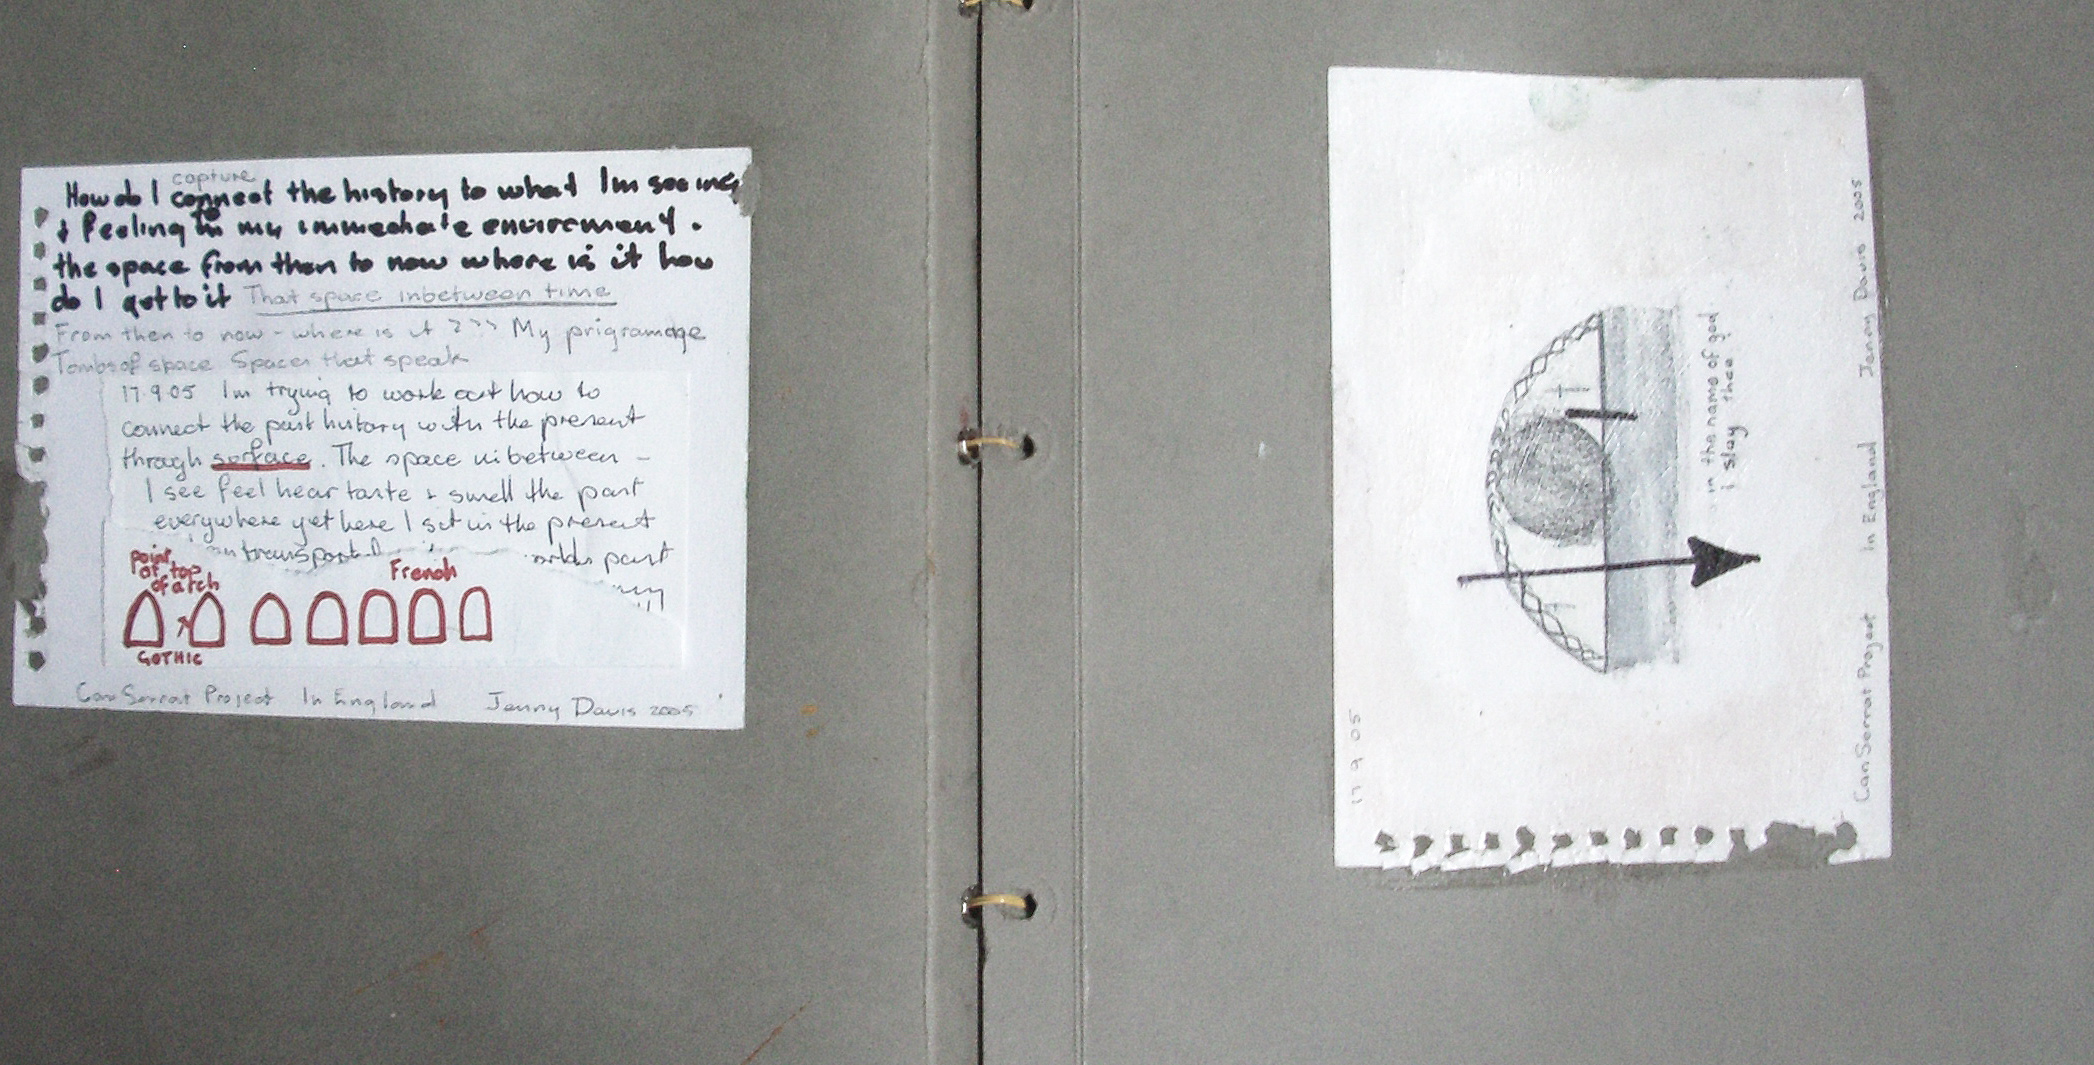 capture
How do I connect the history to what Im seeing
& feeling in my immediate enviroment.
the space from then to now where is it how
do I get to it That space inbetween time
From then to now - where is it ??? My prigramage
Tombs of space Spaces that speak
17.9.05 Im trying to work out how to
connect the past history with the present
through surface. The space inbetween -
I see feel hear taste & smell the past
everywhere yet here I sit in the present
past
point
at top
of arch
French
GOTHIC
Can Serrat Project In England Jenny Davis 2005
in the name of god
I slay thee
17 9 05
Can Serrat Project In England Jenny Davis 2005